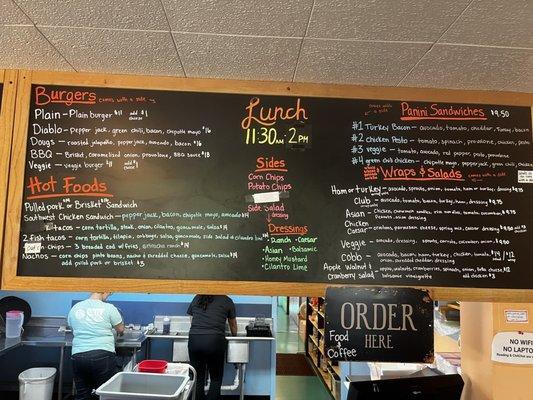 Burgers comes with a side
Plain - Plain burger $11 add cheese $1
Diablo - pepper jack, green chili, bacon, chipotle mayo $16
Dougs - roasted jalapeño, pepper jack, avocado, bacon $16
BBQ - Brisket, caramelized onion, provolone, BBQ sauce $18
Veggie - veggie burger $11 add cheese $1
Hot Foods
Pulled pork or Brisket Sandwich
Southwest Chicken Sandwich - pepper jack, bacon, chipotle mayo, avocado $14
tacos - corn tortilla, steak, onion, cilantro, guacamole, salsa
2 fish tacos - corn tortilla, tilapia, cabbage, salsa, guacamole, side salad w/ cilantro lime
Out
chips - 3 breaded cod w/ fries
Nachos - corn chips pinto beans, nacho & shredded cheese, guacamole, salsa
add pulled pork or brisket $5
Lunch
11:30AM - 2PM
Sides
Corn Chips
Potato Chips
Side Salad
Dressings
Ranch Caesar
Asian Balsamic
Honey Mustard
Cilantro Lime
comes with a side
Panini Sandwiches $9.50
#1 Turkey Bacon - avocado, tomato, cheddar, Turkey, bacon
#2 Chicken Pesto - tomato, spinach, provolone, chicken, pesto
#3 veggie - tomato, avocado, red pepper, pesto, provolone
#4 green chili chicken - chipotle mayo, pepper jack, green chili, chicken
Wraps & Salads comes with a side
Ham or Turkey - avocado, sprouts, onion, tomato, ham or turkey, dressing
Club - avocado, tomato, bacon, turkey, ham, dressing
Asian - Chicken, rice noodles, tomato, cucumber
Chicken
Caesar - croutons, parmesan cheese, spring mix, caesar dressing
Veggie - avocado, dressing, sprouts, carrots, cucumber, onion
Cobb - avocado, bacon, ham, turkey, chicken, tomato
onion, shredded cheddar, dressing
Apple Walnut & - apple, walnuts, cranberries, spinach, onion, feta cheese $12
Cranberry salad balsamic vinaigrette add chicken $3
ORDER
HERE
Food
&
Coffee
NO WIFI
NO LAPTOP